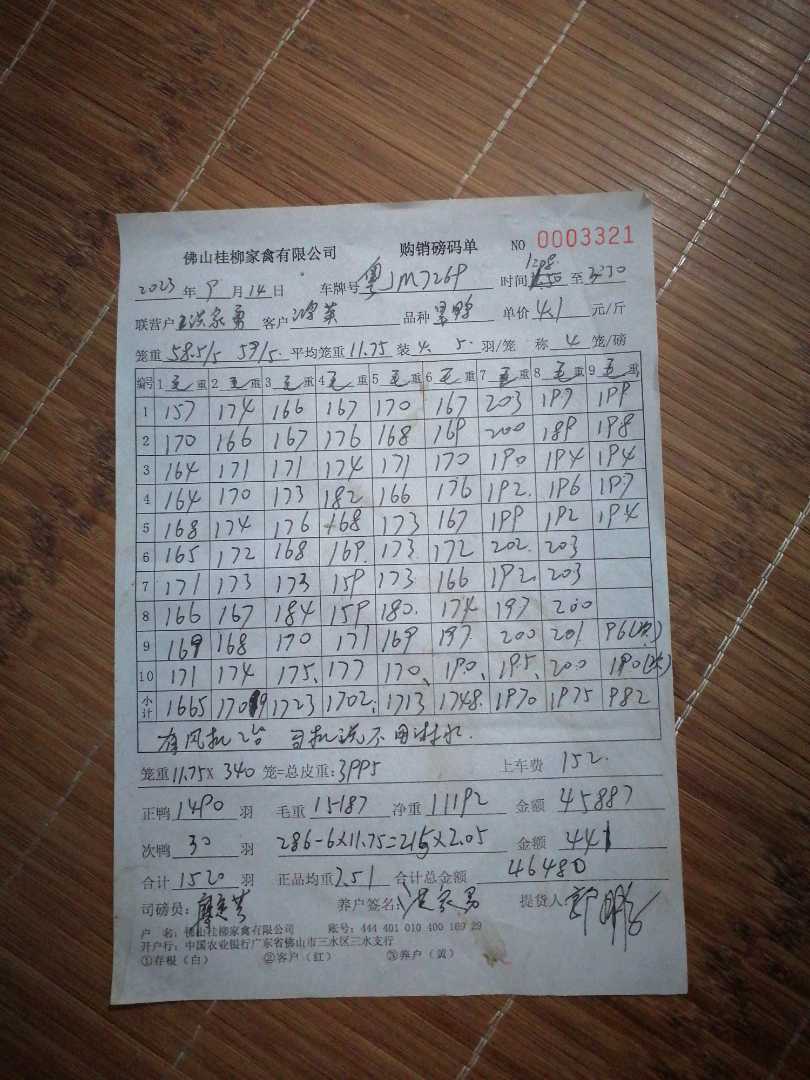 佛山桂柳家禽有限公司 购销磅码单 NO 0003321
2023 年 9 月 14 日 车牌号 粤JM7269 时间 至
联营户 家勇 客户 鸿英 品种 单价 4.1 元/斤
笼重 58.5/5 59/5 平均笼重 11.75 装 4. 5. 羽/笼 称 4 笼/磅
编号 1 毛重 2 毛重 3 毛重 4 毛重 5 毛重 6 毛重 7 毛重 8 毛重 9 毛重
1 157 174 166 167 170 167 203 197 199
2 170 166 167 176 168 169 200 189 198
3 164 171 171 174 171 170 190 194 194
4 164 170 173 182 166 176 192. 196 197
5 168 174 176 168 173 167 199 192 194
6 165 172 168 169. 173. 172 202. 203
7 171 173 173 159 173 166 192. 203
8 166 167 184 159 180. 174 197 200
9 169 168 170 171 169 197 200 201 96(次)
10 171 174 175. 177 170. 190. 195. 200 190(次)
小计 1665 1709 1723 1702. 1713 1748. 1970 1975 982
有风机2台 司机说不用淋水.
笼重 11.75 X 340 笼=总皮重: 3995 上车费 152.
正鸭 1490 羽 毛重 15187 净重 11192 金额 45887
次鸭 30 羽 286-6×11.75=215×2.05 金额 441
合计 1520 羽 正品均重 7.51 合计总金额 46480
司磅员: 养户签名: 家勇 提货人
户 名: 佛山桂柳家禽有限公司 账号: 444 401 010 400 169 29
开户行: 中国农业银行广东省佛山市三水区三水支行
①存根（白） ②客户（红） ③养户（黄）